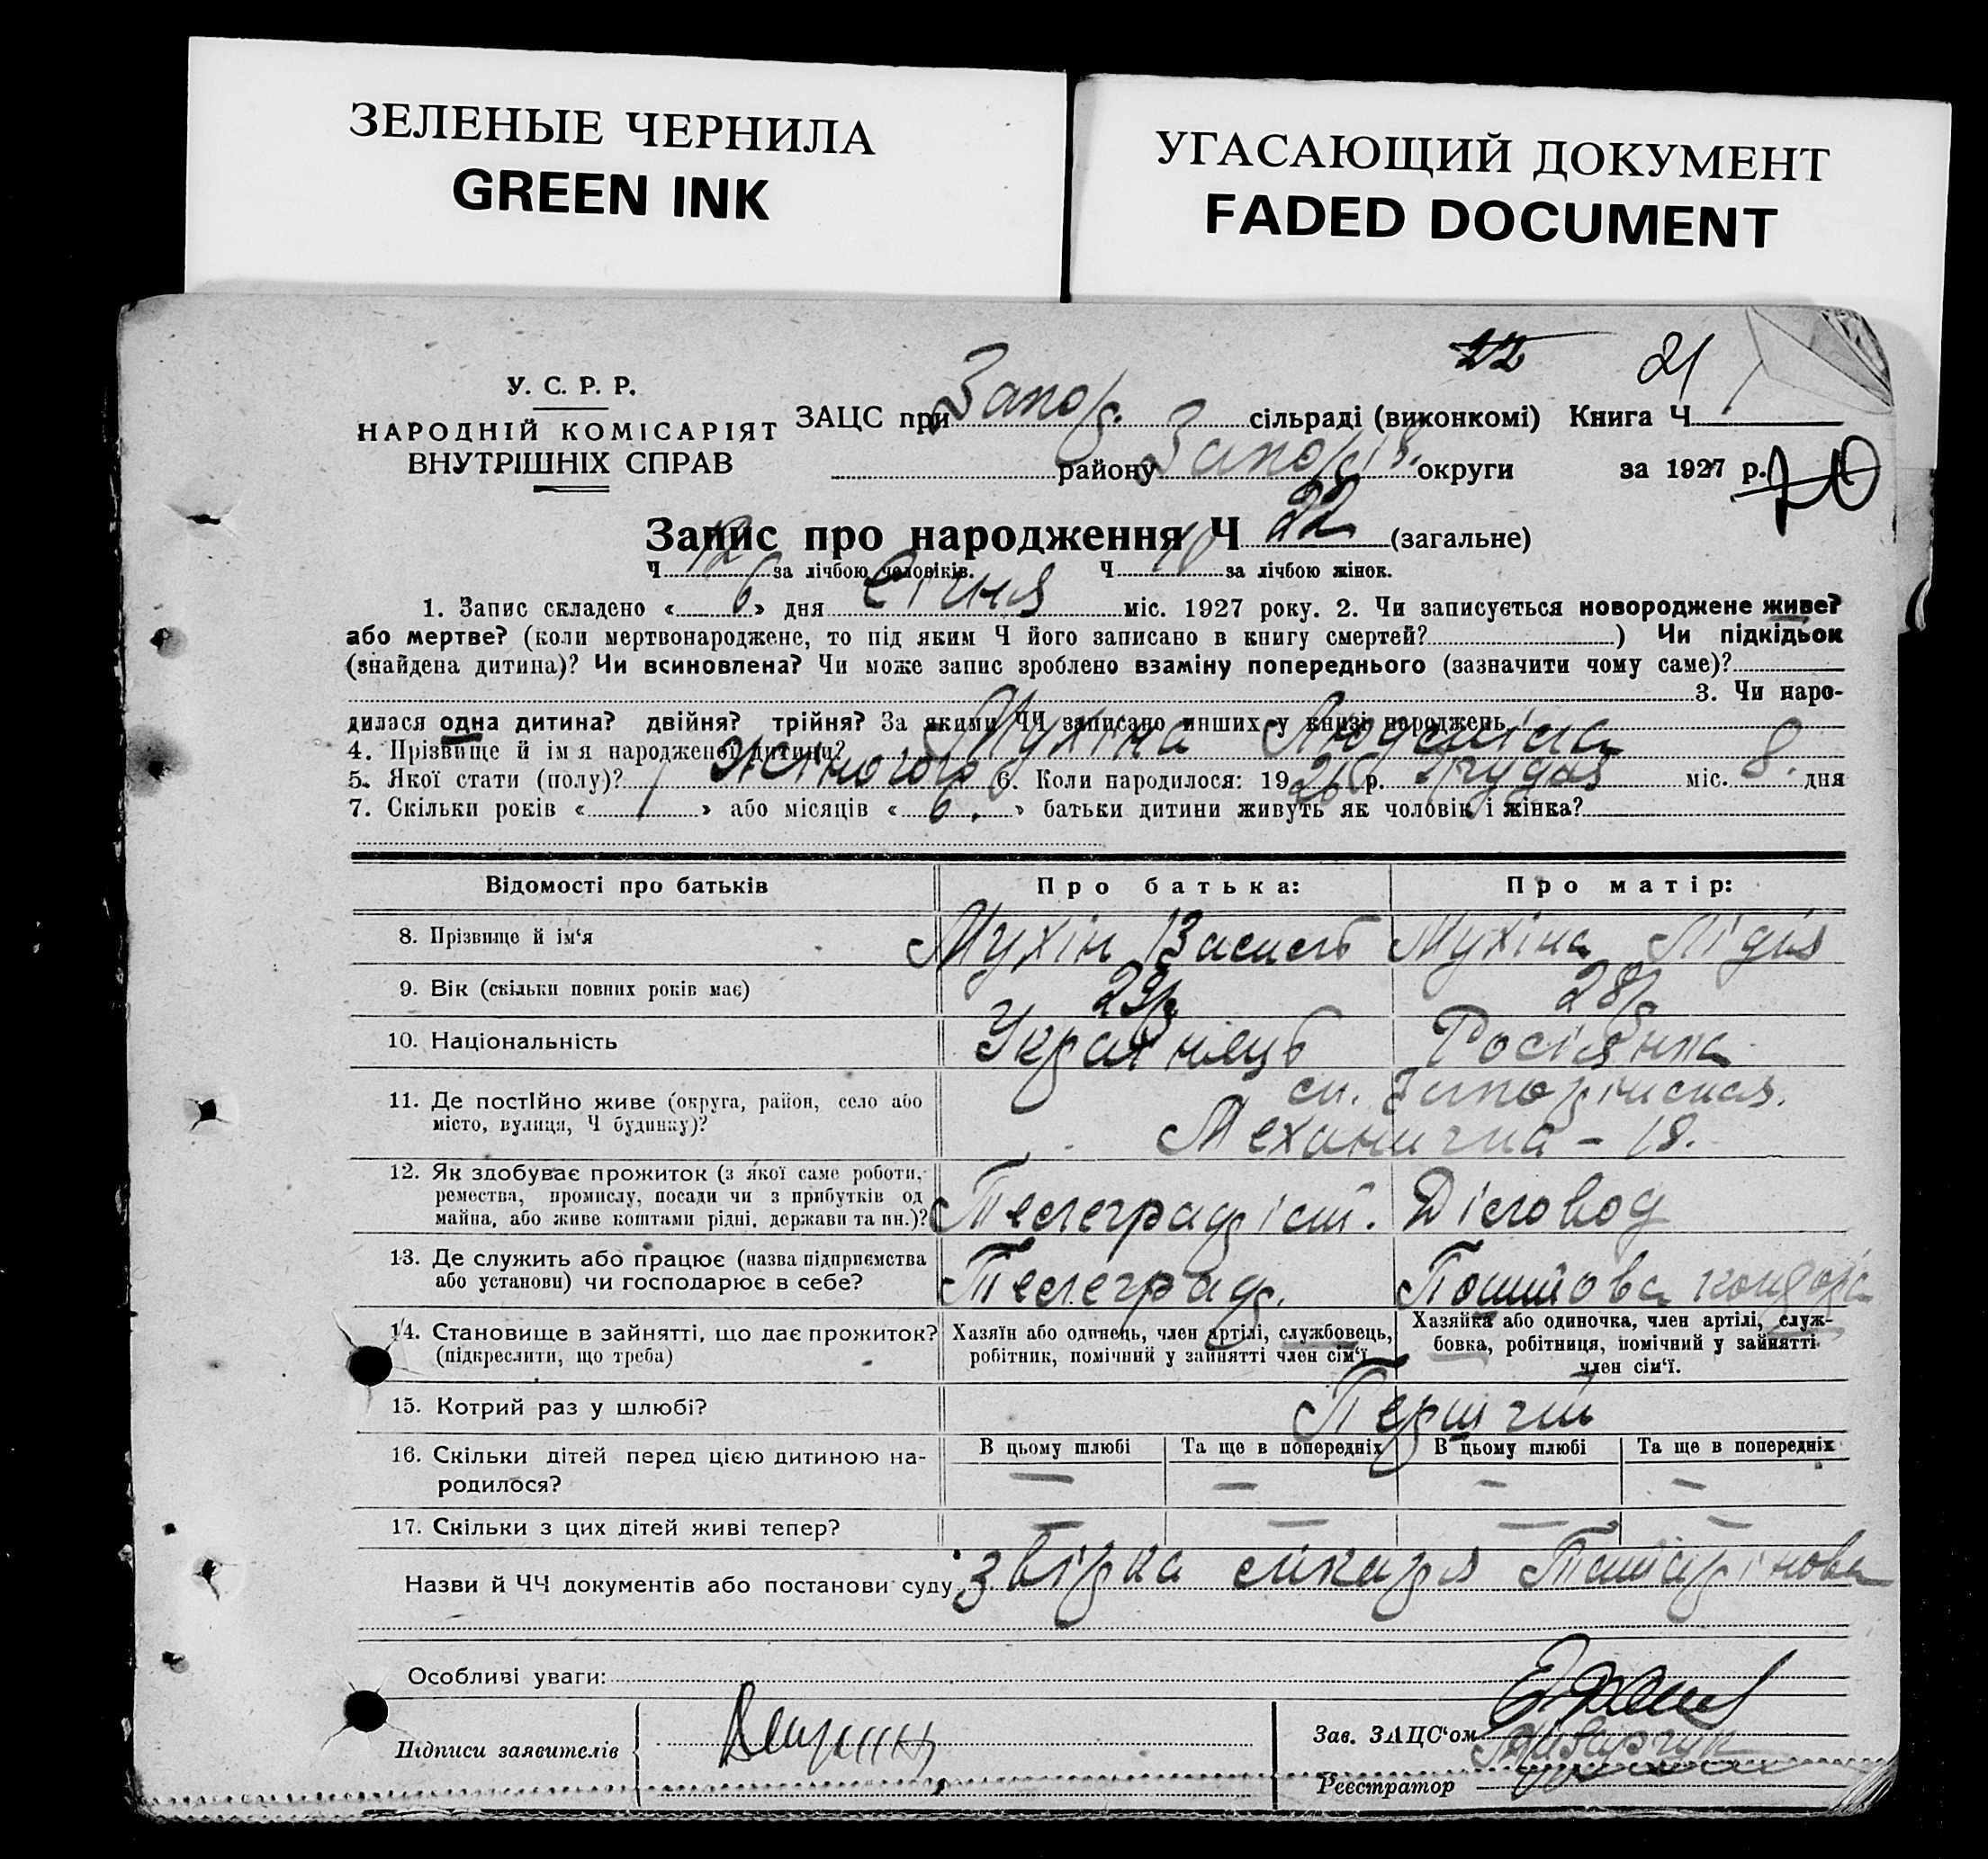 ЗЕЛЕНЫЕ ЧЕРНИЛА
GREEN INK
УГАСАЮЩИЙ ДОКУМЕНТ
FADED DOCUMENT
22 21
У. С. Р. Р.
НАРОДНІЙ КОМІСАРІЯТ
ВНУТРІШНІХ СПРАВ
ЗАЦС при Запор. сільраді (виконкомі) Книга Ч
району Запоріз. округи за 1927 р.
70
Запис про народження Ч 22 (загальне)
Ч 12 за лічбою чоловіків. Ч 10 за лічбою жінок.
1. Запис складено « 6 » дня Січня міс. 1927 року. 2. Чи записується новороджене живе?
або мертве? (коли мертвонароджене, то під яким Ч його записано в книгу смертей? ) Чи підкідьок
(знайдена дитина)? Чи всиновлена? Чи може запис зроблено взаміну попереднього (зазначити чому саме)?
3. Чи наро-
дилася одна дитина? двійня? трійня? За якими ЧЧ записано инших у книзі народжень
4. Прізвище й ім я народженої дитини? Мухіна Людміла
5. Якої стати (полу)? Жіночого 6. Коли народилося: 1926 р. Грудня міс. 8. дня
7. Скільки років « 1 » або місяців « 6. » батьки дитини живуть як чоловік і жінка?
Відомості про батьків Про батька: Про матір:
8. Прізвище й ім‘я Мухін Василь Мухіна Лідія
9. Вік (скільки повних років має) 29р 28р
10. Національність Українець Росіянка
11. Де постійно живе (округа, район, село або
місто, вулиця, Ч будинку)?
Механична – 18.
12. Як здобуває прожиток (з якої саме роботи,
ремества, промислу, посади чи з прибутків од
майна, або живе коштами рідні, держави та ин.)?
Телеграфіст. Діловод
13. Де служить або працює (назва підприємства
або установи) чи господарює в себе?
Телеграф. Поштова контора
14. Становище в зайнятті, що дає прожиток?
(підкреслити, що треба)
Хазяїн або одинець, член артілі, службовець,
робітник, помічний у зайнятті член сім‘ї
Хазяйка або одиночка, член артілі, служ-
бовка, робітниця, помічний у зайнятті
член сім‘ї.
15. Котрий раз у шлюбі? Перший
16. Скільки дітей перед цією дитиною на-
родилося?
В цьому шлюбі Та ще в попередніх В цьому шлюбі Та ще в попередніх
— — — —
17. Скільки з цих дітей живі тепер? — — — —
Назви й ЧЧ документів або постанови суду звірка лікаря Татарінова
Особливі уваги:
Підписи заявителів
Зав. ЗАЦС‘ом
Реєстратор